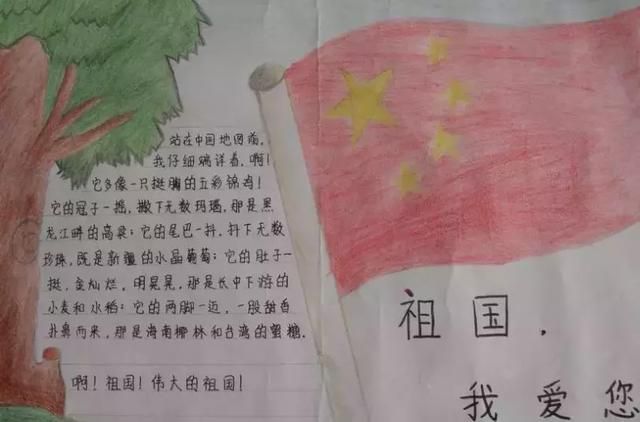 站在中国地图前,
我仔细端详着,啊!
它多像一只挺胸的五彩锦鸡!
它的冠子一摇,撒下无数玛瑙,那是黑
龙江畔的高粱;它的尾巴一抖,抖下无数
珍珠,既是新疆的水晶葡萄;它的肚子一
挺,金灿烂,明晃晃,那是长中下游的
小麦和水稻;它的两脚一迈,一股甜香
扑鼻而来,那是海南椰林和台湾的蜜糖.
啊!祖国!伟大的祖国!
祖国,
我爱您